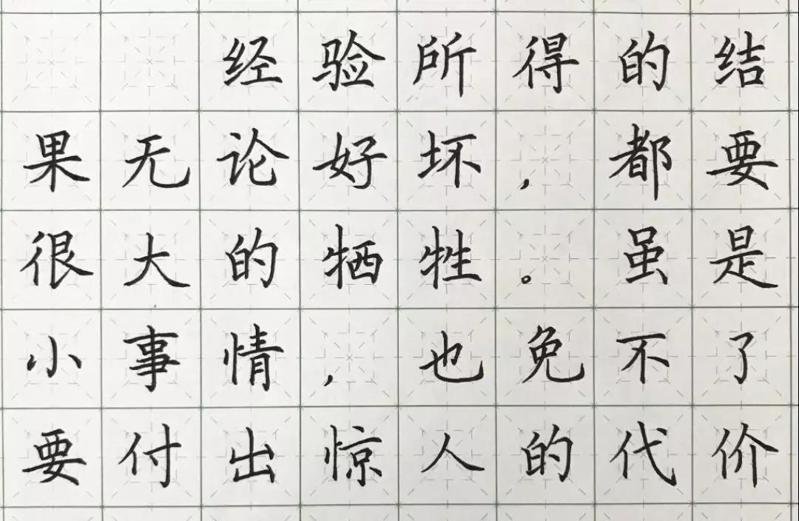 经验所得的结
果无论好坏，都要
很大的牺牲。虽是
小事情，也免不了
要付出惊人的代价